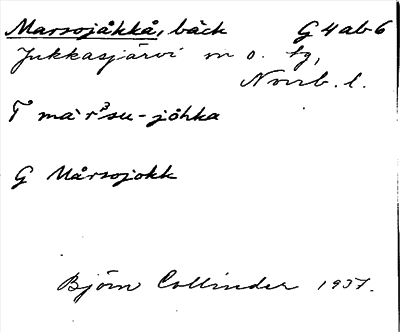 Marsojåkkå, bäck G 4 ab 6
Jukkasjärvi sn o. tg,
Norrb. l.
T màr³su-jòhka
G Mårsojokk
Björn Collinder 1937.